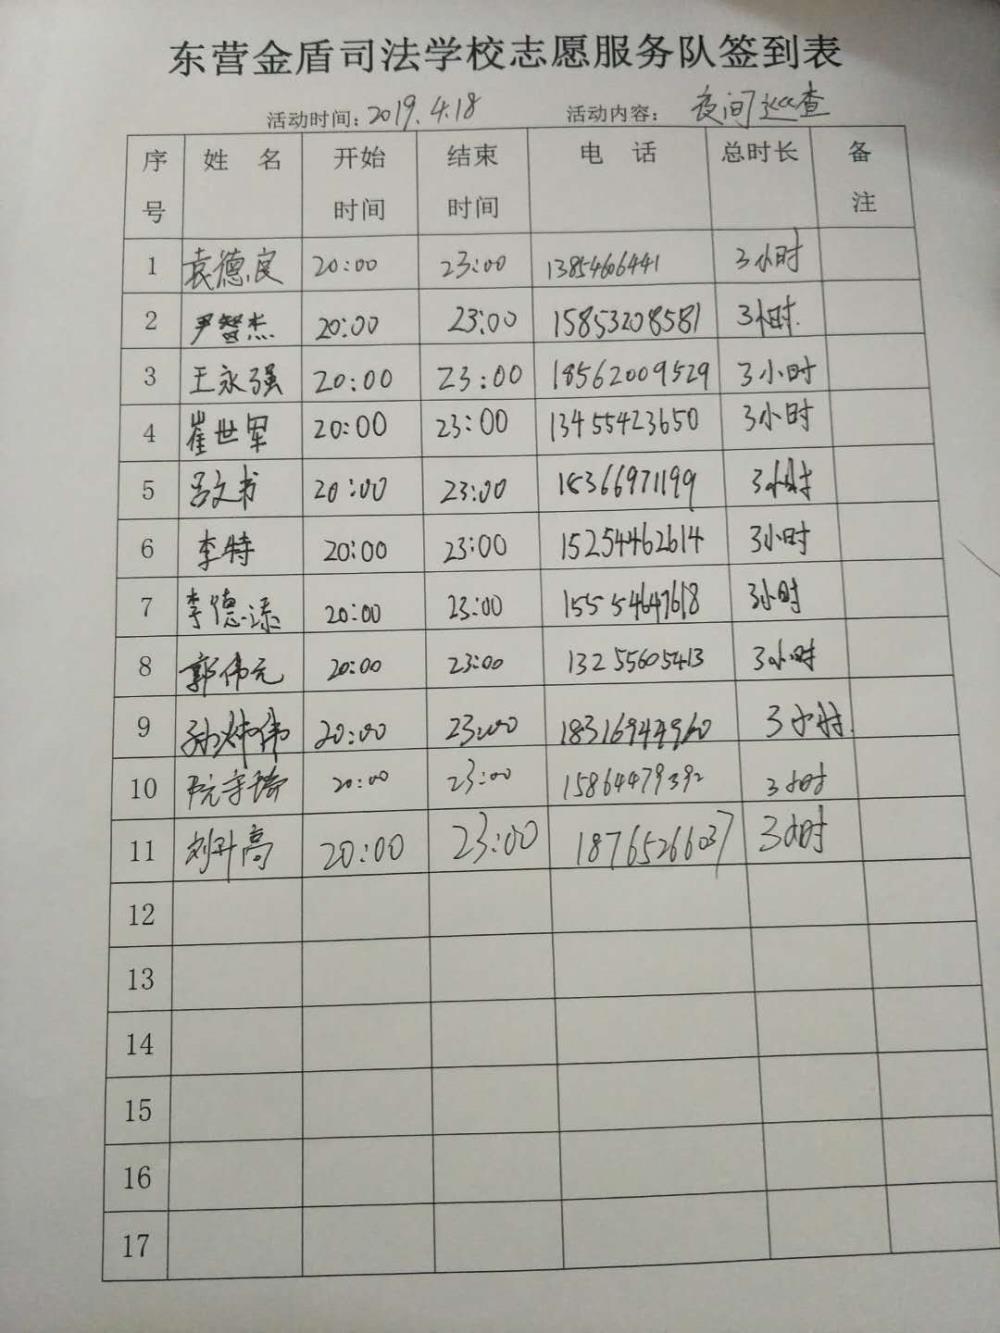 东营金盾司法学校志愿服务队签到表
活动时间：2019.4.18 活动内容： 夜间巡查
序号 姓 名 开始时间 结束时间 电 话 总时长 备注
1 袁德良 20:00 23:00 13854606441 3小时
2 尹智杰 20:00 23:00 15853208581 3小时.
3 王永强 20:00 23:00 18562009529 3小时
4 崔世军 20:00 23:00 13455423650 3小时
5 吕文书 20:00 23:00 18366971199 3小时
6 李特 20:00 23:00 15254462614 3小时
7 李德 20:00 23:00 15554647618 3小时
8 郭伟元 20:00 23:00 13255605413 3小时
9 孙炜伟 20:00 23:00 18316944960 3小时
10 阮守 20:00 23:00 15864479392 3小时
11 刘升高 20:00 23:00 18765266037 3小时
12
13
14
15
16
17